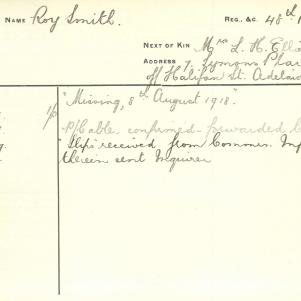 NAME Roy Smith. REG. &C. 48th
NEXT OF KIN Mrs L. H. Elli
ADDRESS 7, Symons Pla
off Halifax St. Adelaid
"Missing, 8th August 1918."
P/Cable confirmed forwarded
"Slip" received from Commrs.
therein sent Inquirer